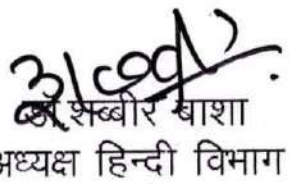 डॉ शब्बीर बाशा
अध्यक्ष हिन्दी विभाग